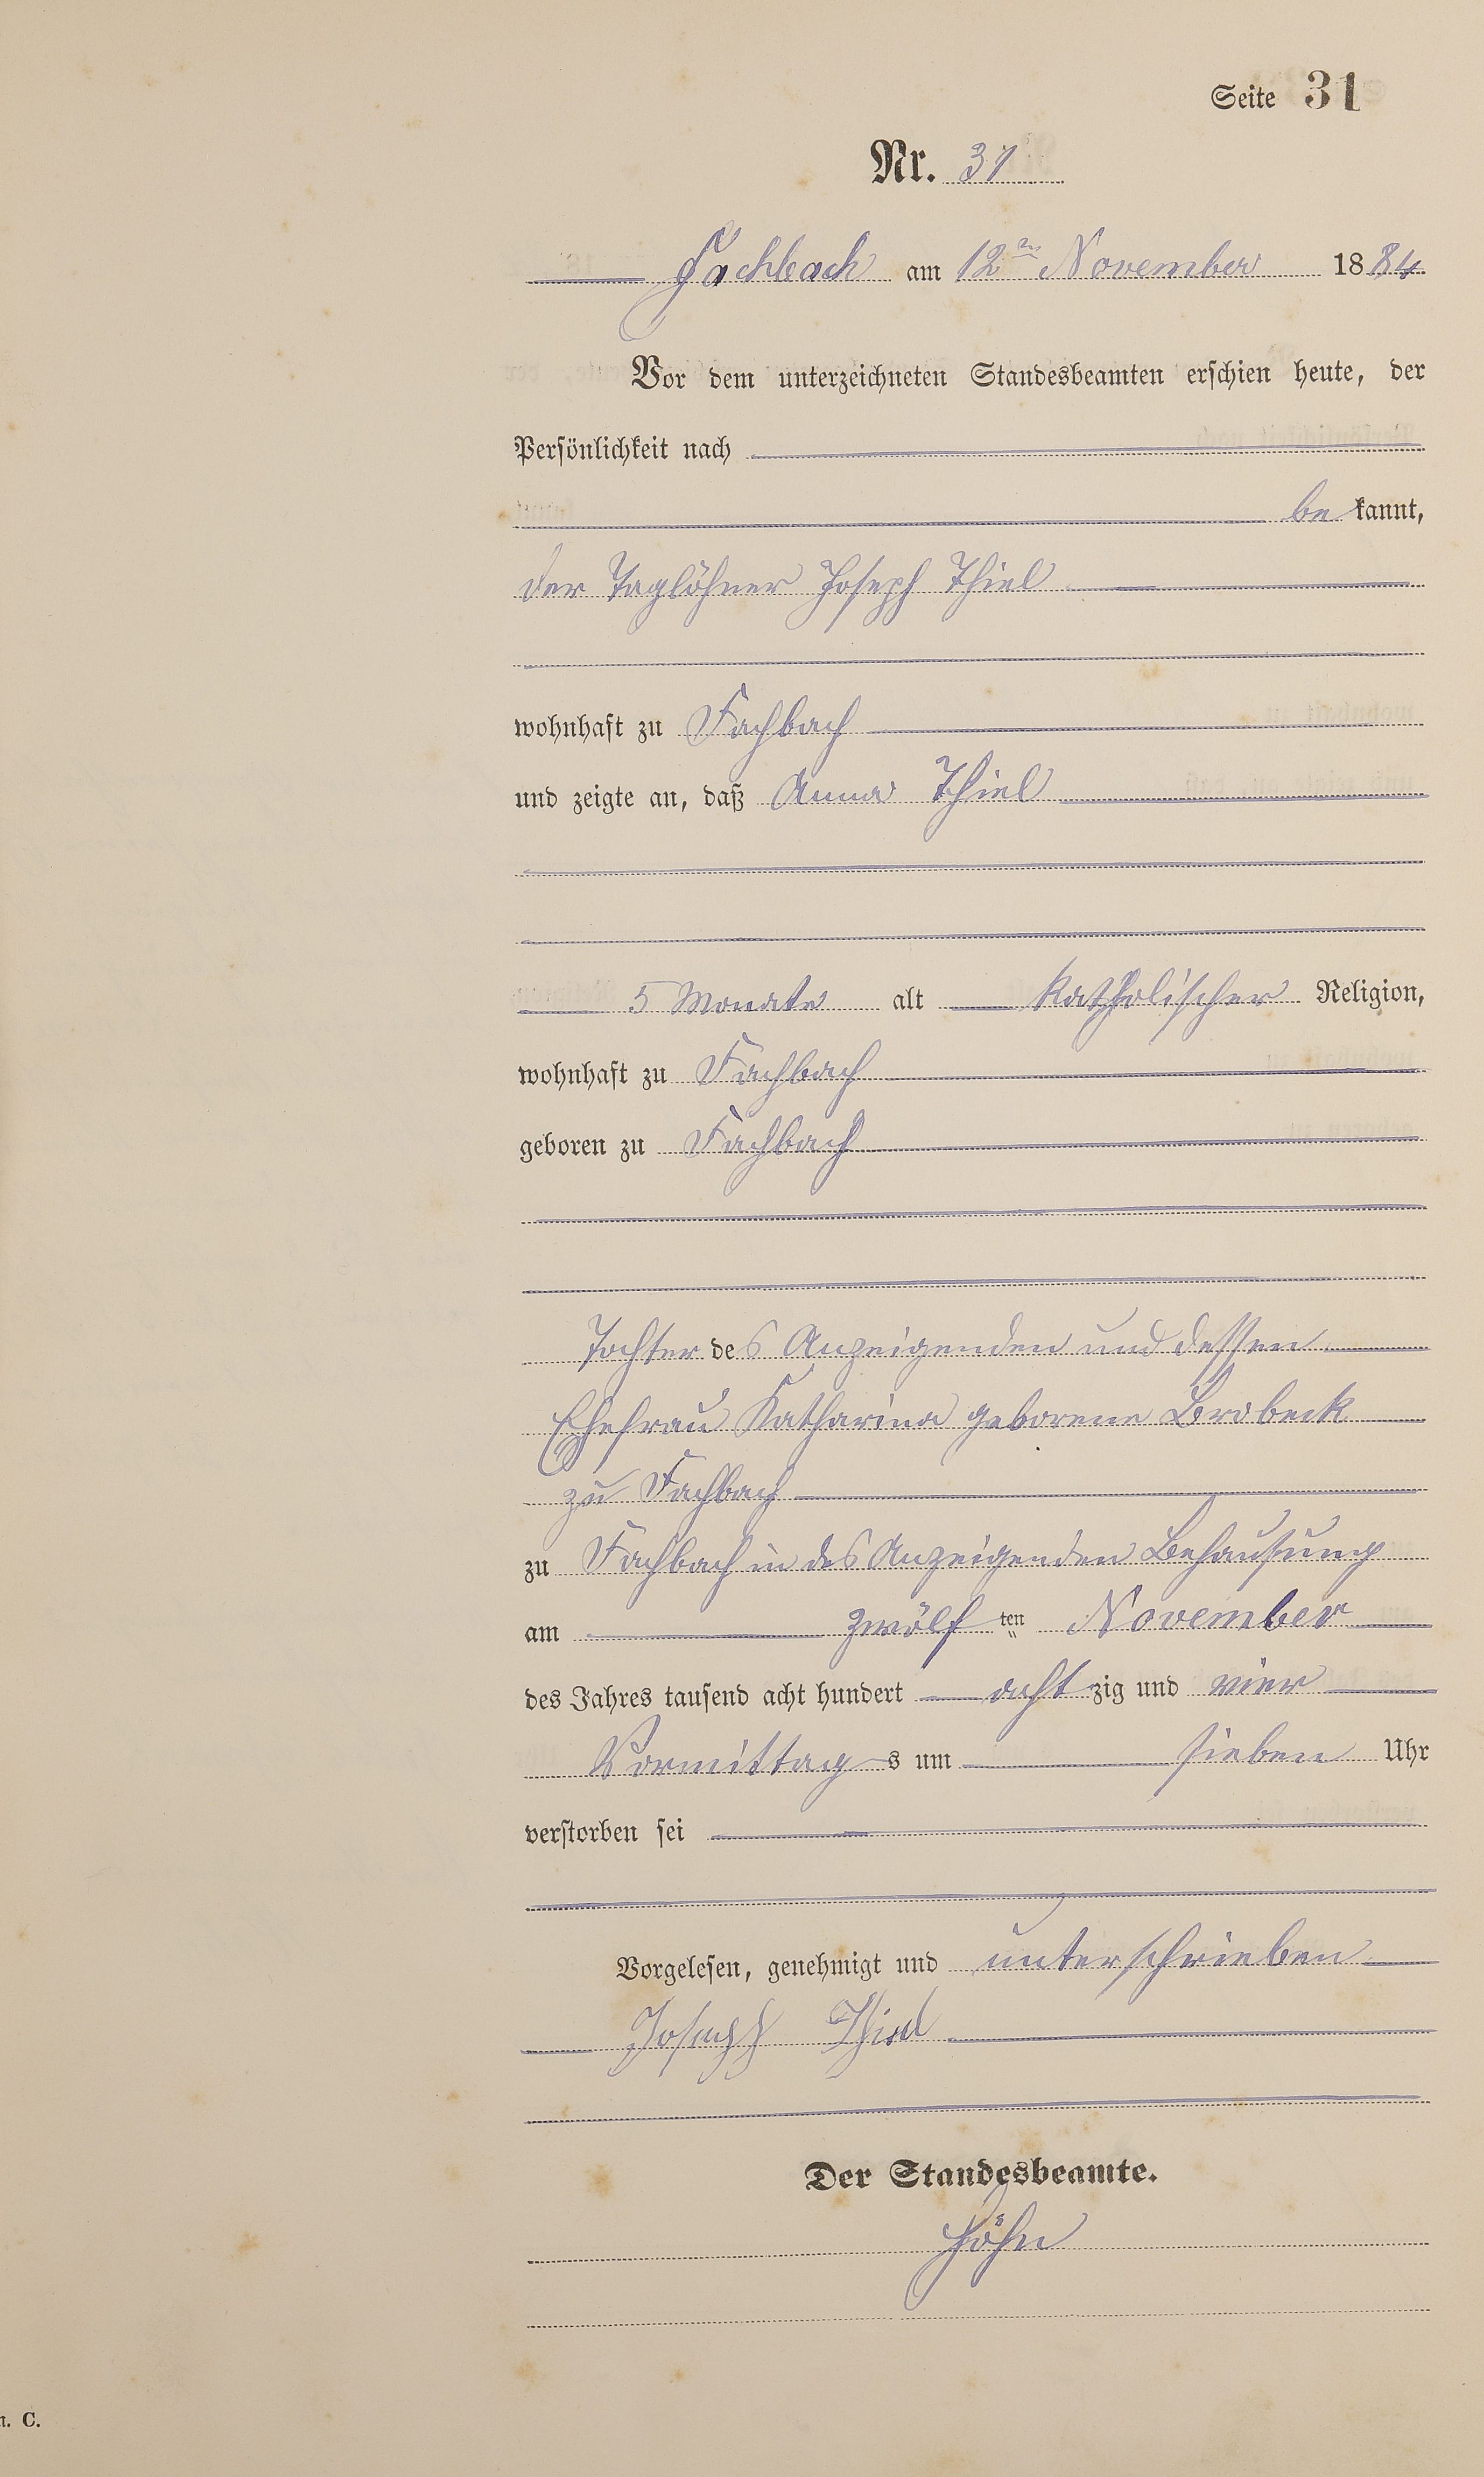 Seite 31
Nr. 31
Fachbach am 12ten November 1884
Vor dem unterzeichneten Standesbeamten erschien heute, der
Persönlichkeit nach
be kannt,
der Taglöhner Joseph Thiel
wohnhaft zu Fachbach
und zeigte an, daß Anna Thiel
5 Monate alt katholischer Religion,
wohnhaft zu Fachbach
geboren zu Fachbach
Tochter des Anzeigenden und dessen
Ehefrau Katharina geborene Brobeck
zu Fachbach
zu Fachbach in des Anzeigenden Behausung
am zwölf ten November
des Jahres tausend acht hundert acht zig und vier
Vormittag s um sieben Uhr
verstorben sei
Vorgelesen, genehmigt und unterschrieben
Joseph Thiel
Der Standesbeamte.
Höhn
C.